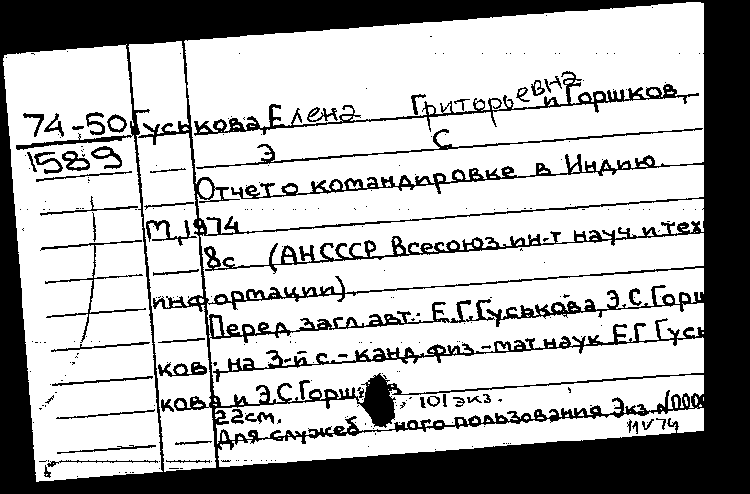 74-50 Гуськова, Елена Григорьевна и Горшков,
1589 Э С
Отчет о командировке в Индию.
М, 1974
8с (АН СССР Всесоюз. ин-т науч. и тех
информации).
Перед загл. авт.: Е.Г. Гуськова, Э.С. Горш
ков; на 3-й с. - канд. физ.-мат. наук Е.Г. Гусь
кова и Э.С. Горшков
22см. 101 экз.
Для служебного пользования. Экз. N0000
11 V 74